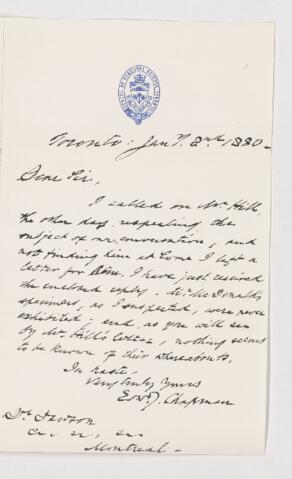 Toronto: Jany. 2nd, 1880 -
Dear Sir,
I called on Mr. Hill,
the other day, respecting the
subject of our conversation, and
not finding him at home I left a
letter for him. I have just received
the enclosed reply. Mr. McDonald's
specimens, as I suspected, were never
exhibited: and, as you will see
by Mr. Hill's letter, nothing seems
to be known of their whereabouts.
In haste,
Very truly yours
Edwd. J. Chapman
Dr. Dawson
Montreal -